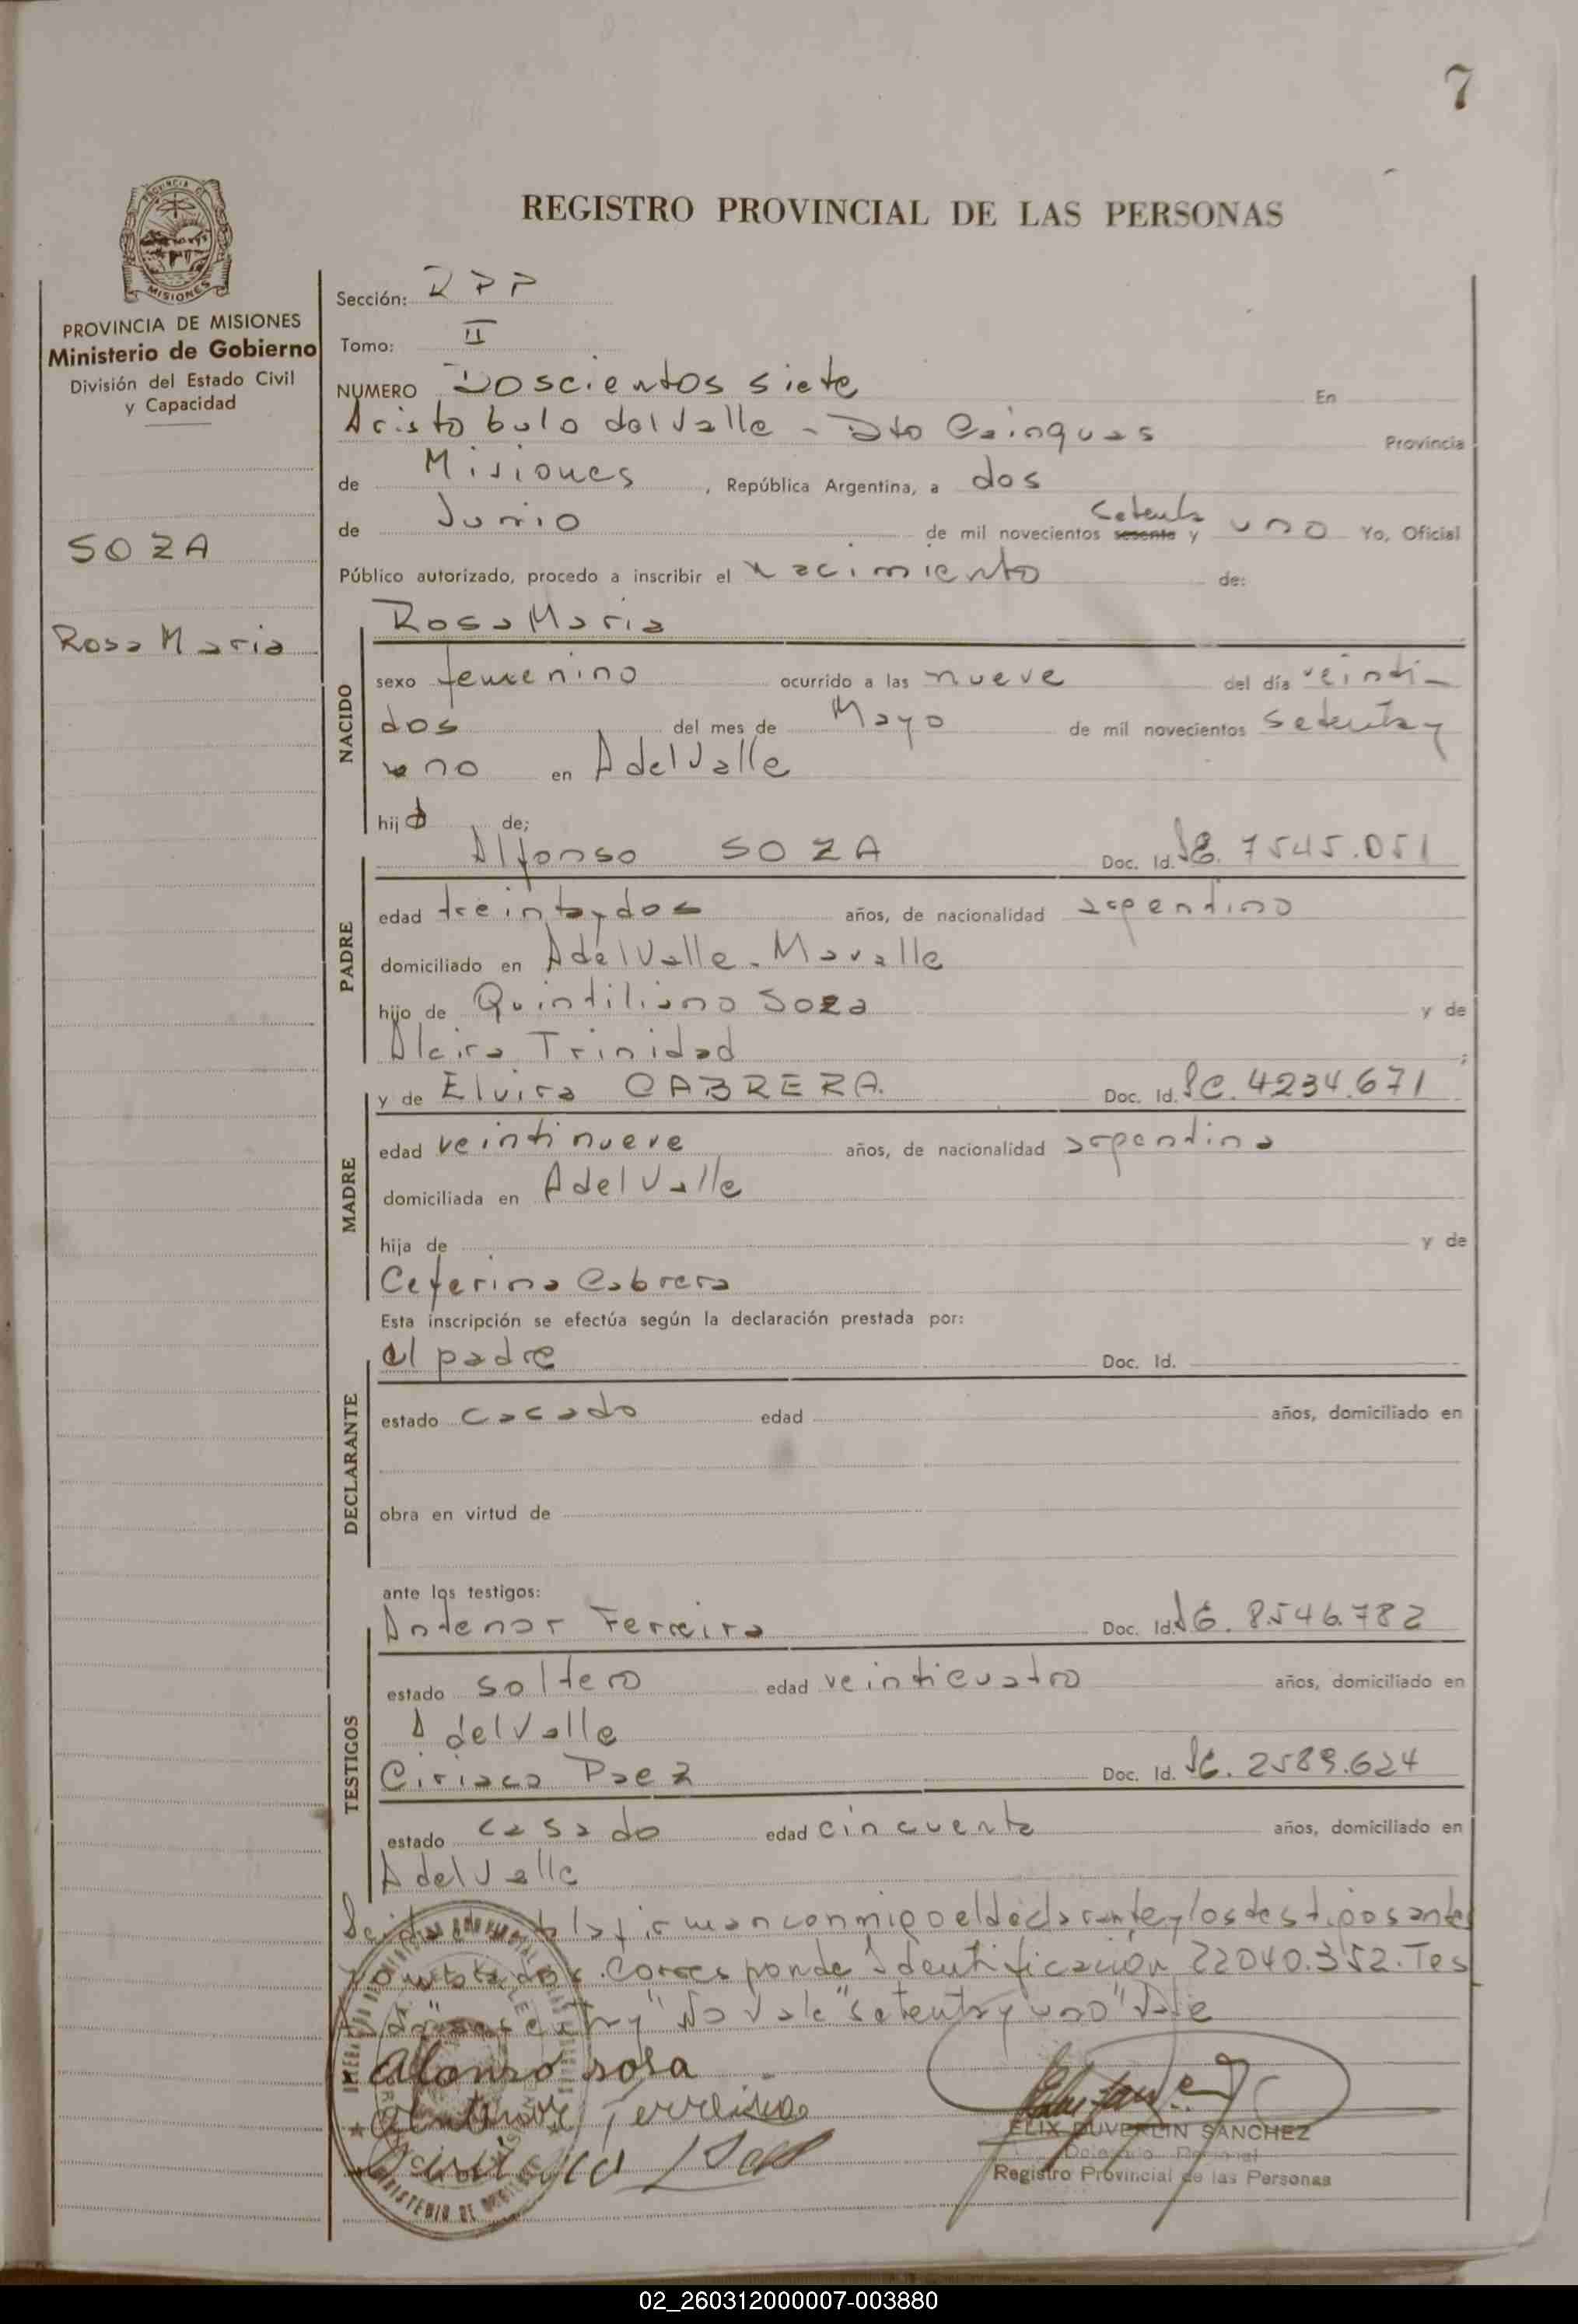 7
REGISTRO PROVINCIAL DE LAS PERSONAS
PROVINCIA DE MISIONES
Ministerio de Gobierno
División del Estado Civil
y Capacidad
SOZA
Rosa Maria
Sección: RPP
Tomo: II
NUMERO Doscientos siete En
Aristobulo del Valle - Dto Cainguas Provincia
de Misiones, República Argentina, a dos
de Junio de mil novecientos sesenta setenta y uno Yo, Oficial
Público autorizado, procedo a inscribir el nacimiento de:
NACIDO
Rosa Maria
sexo femenino ocurrido a las nueve del día veinti-
dos del mes de Mayo de mil novecientos setenta y
uno en A del Valle
hija de;
PADRE
Alfonso SOZA Doc. Id. 7545.051
edad treinta y dos años, de nacionalidad argentino
domiciliado en A del Valle -
hijo de Quintiliano Soza y de
Alcira Trinidad;
MADRE
y de Elvira CABRERA. Doc. Id. LC. 4234.671
edad veintinueve años, de nacionalidad argentina
domiciliada en A del Valle
hija de y de
Ceferina Cabrera
Esta inscripción se efectúa según la declaración prestada por:
DECLARANTE
el padre Doc. Id.
estado casado edad años, domiciliado en
obra en virtud de
ante los testigos:
TESTIGOS
Antenor Ferreira Doc. Id. 8.546.782
estado soltero edad veinticuatro años, domiciliado en
A del Valle
Ciriaco Paez Doc. Id. 2589.624
estado casado edad cincuenta años, domiciliado en
A del Valle
Leida el acta la firman conmigo el declarante y los testigos antes
nombrados. Corresponde Identificación 22040.352. Tes
tado "sesenta y" No Vale "setenta y uno" Vale
Alonso sosa
Antenor Ferreira
Ciriaco Paez
ELIX DUVERLIN SANCHEZ
Delegado Personal
Registro Provincial de las Personas
02_260312000007-003880